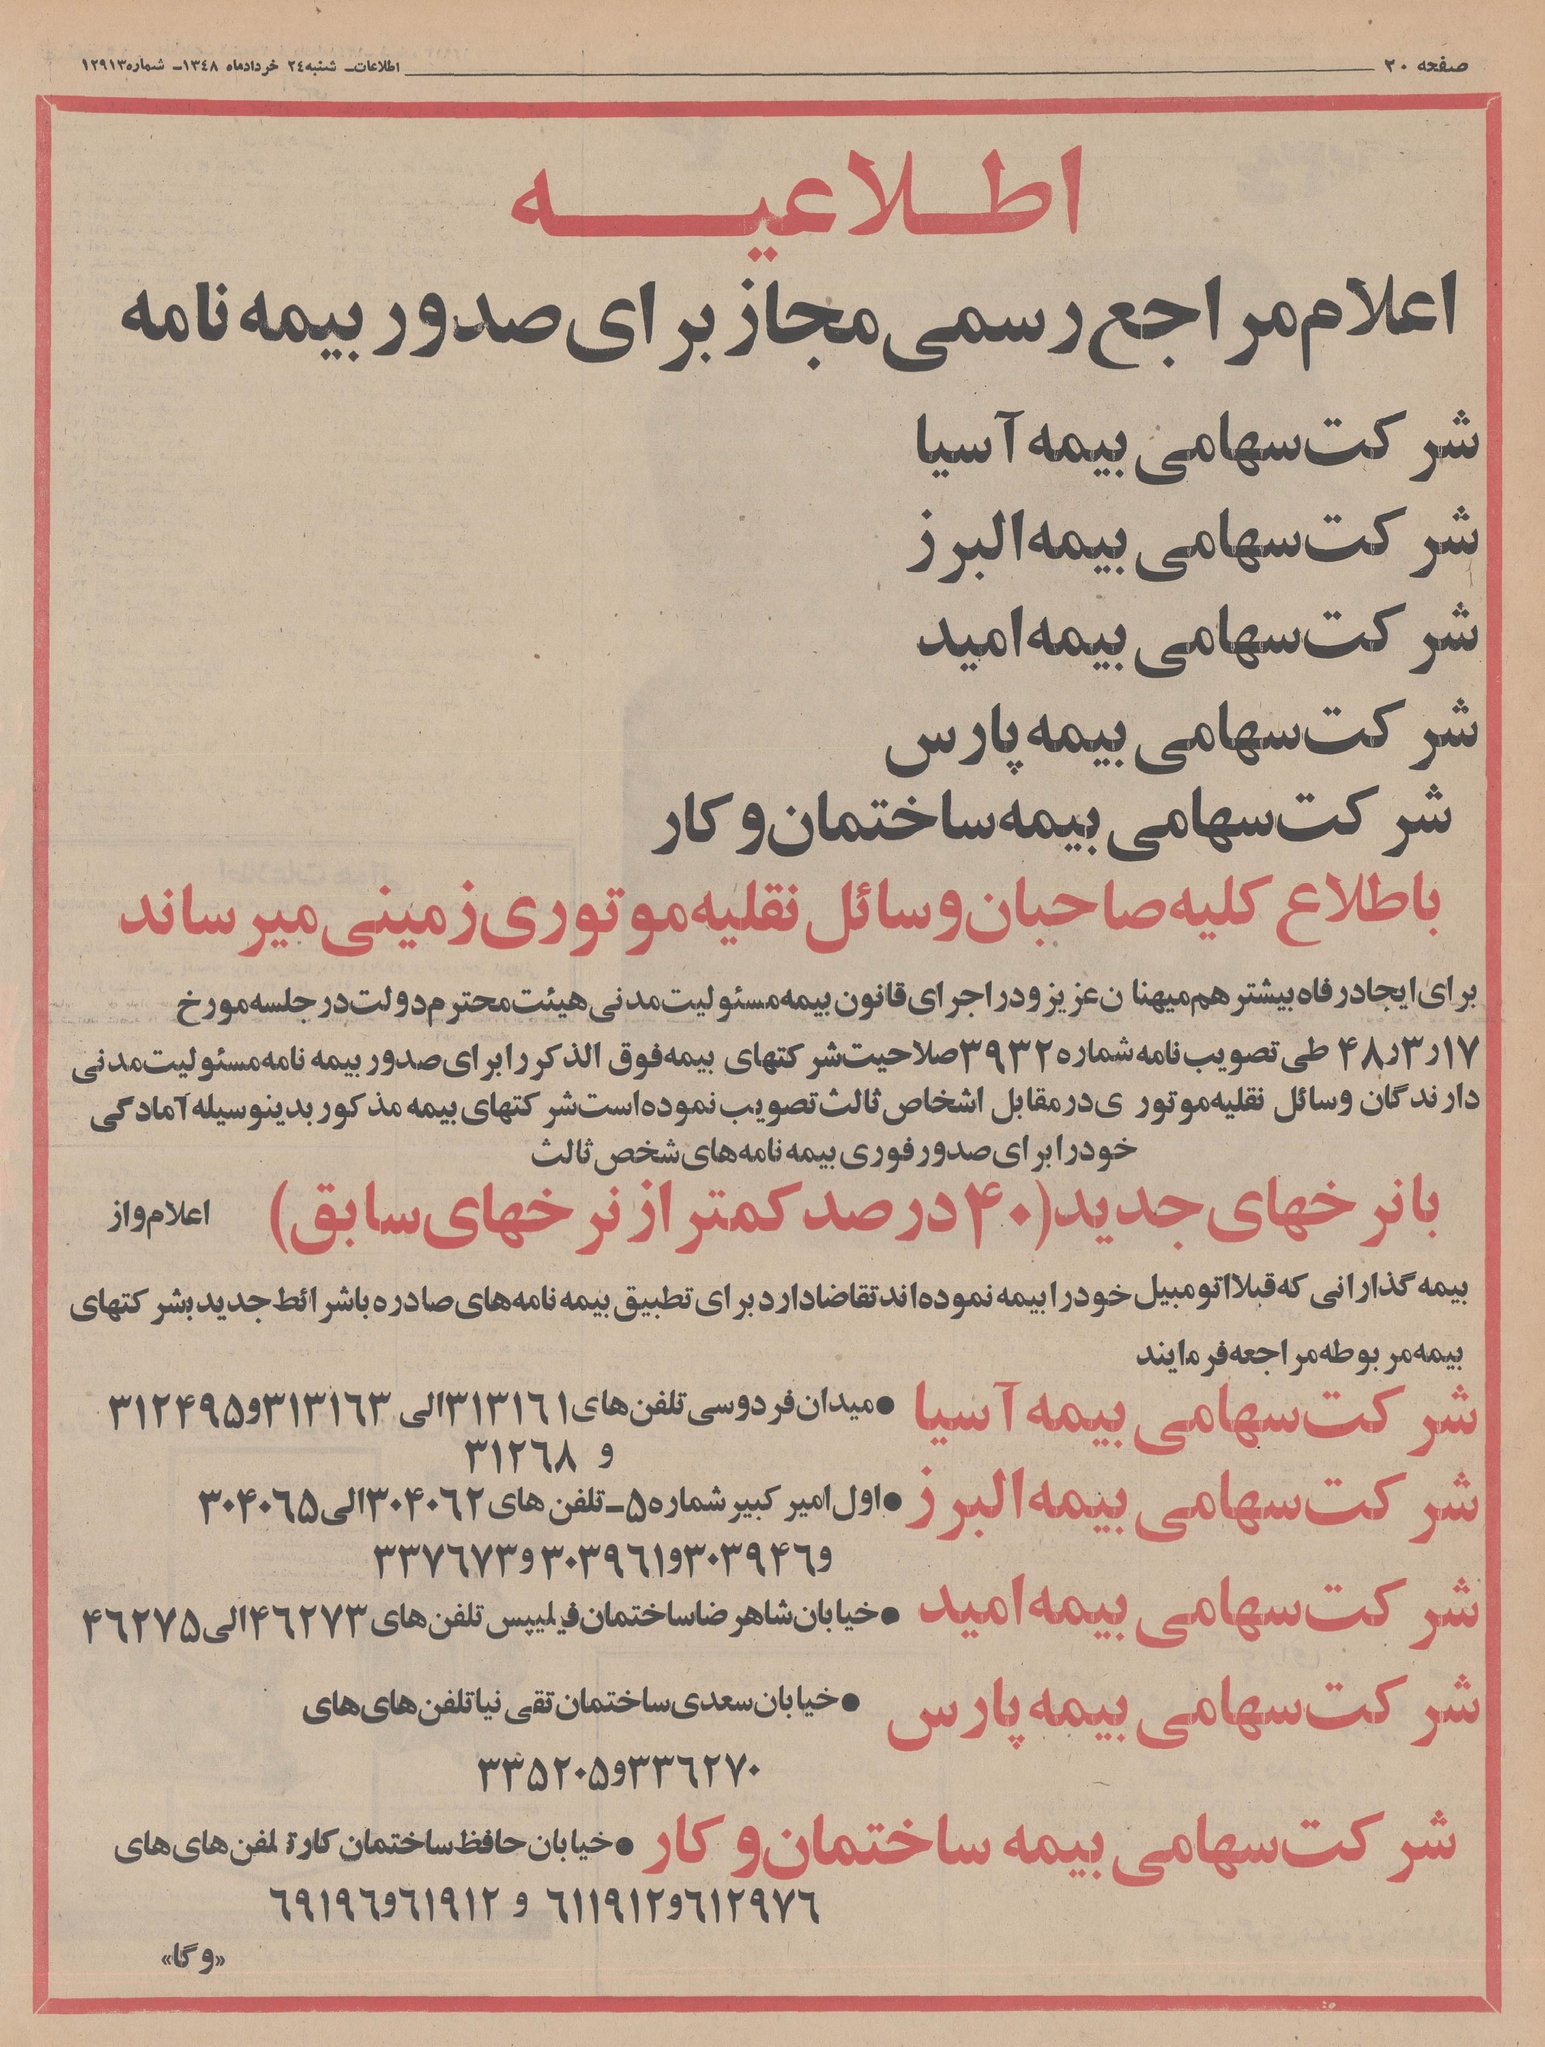 صفحه ۲۰
اطلاعات ـ شنبه ۲۴ خردادماه ۱۳۴۸ ـ شماره ۱۲۹۱۳
اطلاعیه
اعلام مراجع رسمی مجاز برای صدور بیمه نامه
شرکت سهامی بیمه آسیا
شرکت سهامی بیمه البرز
شرکت سهامی بیمه امید
شرکت سهامی بیمه پارس
شرکت سهامی بیمه ساختمان و کار
باطلاع کلیه صاحبان وسائل نقلیه موتوری زمینی میرساند
برای ایجاد رفاه بیشتر هم میهنان عزیز و در اجرای قانون بیمه مسئولیت مدنی هیئت محترم دولت در جلسه مورخ
۴۸٫۳٫۱۷ طی تصویب نامه شماره ۳۹۳۲ صلاحیت شرکتهای بیمه فوق الذکر را برای صدور بیمه نامه مسئولیت مدنی
دارندگان وسائل نقلیه موتوری در مقابل اشخاص ثالث تصویب نموده است شرکتهای بیمه مذکور بدینوسیله آمادگی
خود را برای صدور فوری بیمه نامه های شخص ثالث
با نرخهای جدید (۴۰ درصد کمتر از نرخهای سابق) اعلام و از
بیمه گذارانی که قبلا اتومبیل خود را بیمه نموده اند تقاضا دارد برای تطبیق بیمه نامه های صادره با شرائط جدید بشرکتهای
بیمه مربوطه مراجعه فرمایند
شرکت سهامی بیمه آسیا ● میدان فردوسی تلفن های ۳۱۳۱۶۱ الی ۳۱۳۱۶۳ و ۳۱۲۴۹۵
و ۳۱۲۶۸
شرکت سهامی بیمه البرز ● اول امیرکبیر شماره ۵ ـ تلفن های ۳۰۴۰۶۲ الی ۳۰۴۰۶۵
و ۳۰۳۹۴۶ و ۳۰۳۹۶۱ و ۳۳۷۶۷۳
شرکت سهامی بیمه امید ● خیابان شاهرضا ساختمان فیلیپس تلفن های ۴۶۲۷۳ الی ۴۶۲۷۵
شرکت سهامی بیمه پارس ● خیابان سعدی ساختمان تقی نیا تلفن های های
۳۳۶۲۷۰ و ۳۳۵۲۰۵
شرکت سهامی بیمه ساختمان و کار ● خیابان حافظ ساختمان کار تلفن های های
۶۱۲۹۷۶ و ۶۱۱۹۱۲ و ۶۱۹۱۲ و ۶۹۱۹۶
«وگا»